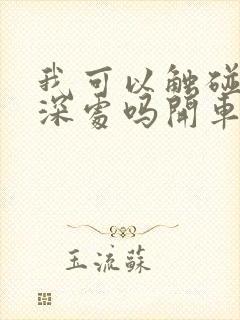 我可以触碰
深處吗開車
玉流蘇